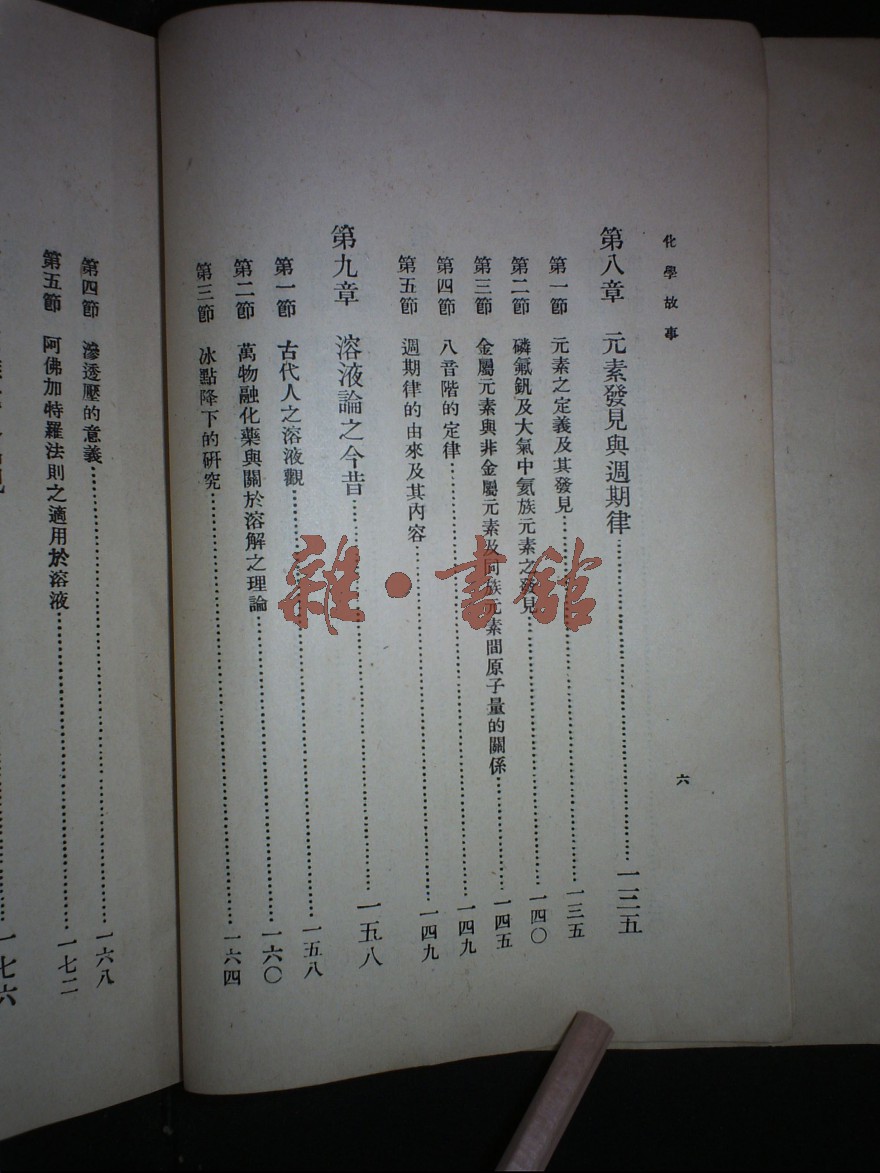 化學故事
六
第八章 元素發見與週期律……一三五
第一節 元素之定義及其發見……一三五
第二節 磷氟釩及大氣中氦族元素之發見……一四〇
第三節 金屬元素與非金屬元素及同族元素間原子量的關係……一四五
第四節 八音階的定律……一四九
第五節 週期律的由來及其內容……一四九
第九章 溶液論之今昔……一五八
第一節 古代人之溶液觀……一五八
第二節 萬物融化藥與關於溶解之理論……一六〇
第三節 冰點降下的研究……一六四
第四節 滲透壓的意義……一六八
第五節 阿佛加特羅法則之適用於溶液……一七二
一七六
雜·書館